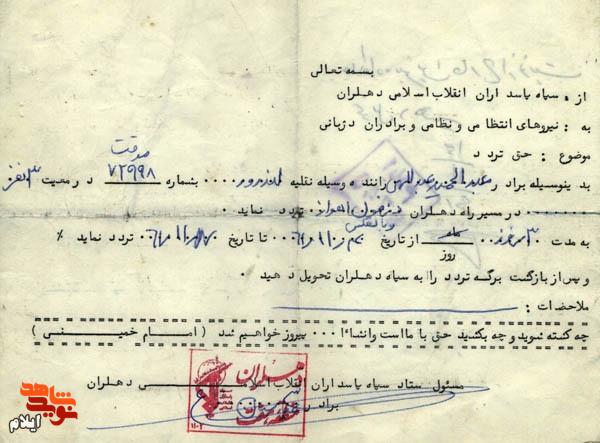 بسمه تعالی
از : سپاه پاسداران انقلاب اسلامی دهلران
به : نیروهای انتظامی و نظامی و برادران دژبانی
موضوع : حق تردد
موقت
بدینوسیله برادر راننده وسیله نقلیه بشماره ۷۲۹۹۸ در معیت ۳ نفر
در مسیر راه دهلران دزفول اهواز تردد نماید
و بالعکس
به مدت ماه از تاریخ تا تاریخ تردد نماید
روز
و پس از بازگشت برگه تردد را به سپاه دهلران تحویل دهید
ملاحضات :
چه کشته شوید و چه بکشید حق با ما است وانشاءا... پیروز خواهیم شد ( امام خمینی )
مسئول ستاد سپاه پاسداران انقلاب اسلامی دهلران
برادر
دهلران
شاهد
نوید
ایلام